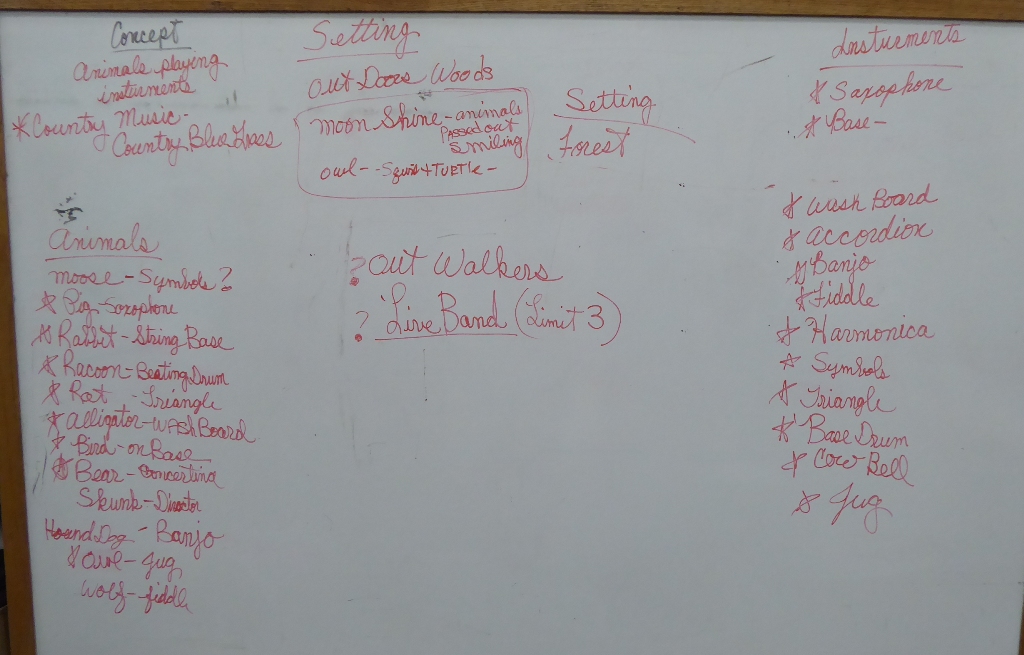 Concept
Animals playing
insturments
* Country Music -
Country Blue Grass
Setting
Out Doors Woods
Moon Shine - animals
Passed out
Smiling
owl - - Squirl + TURTLE -
Setting
Forest
Animals
moose - Symbols ?
* Pig - Saxophone
* Rabbit - String Base
* Racoon - Beating Drum
* Rat - Triangle
* Alligator - WASH Board
* Bird - on Base
* Bear - Concertina
Skunk - Director
Hound Dog - Banjo
* Owl - Jug
Wolf - fiddle
? Out Walkers
? Live Band (Limit 3)
Insturments
* Saxophone
* Base -
* Wash Board
* Accordion
* Banjo
* Fiddle
* Harmonica
* Symbols
* Triangle
* Base Drum
* Cow Bell
* Jug